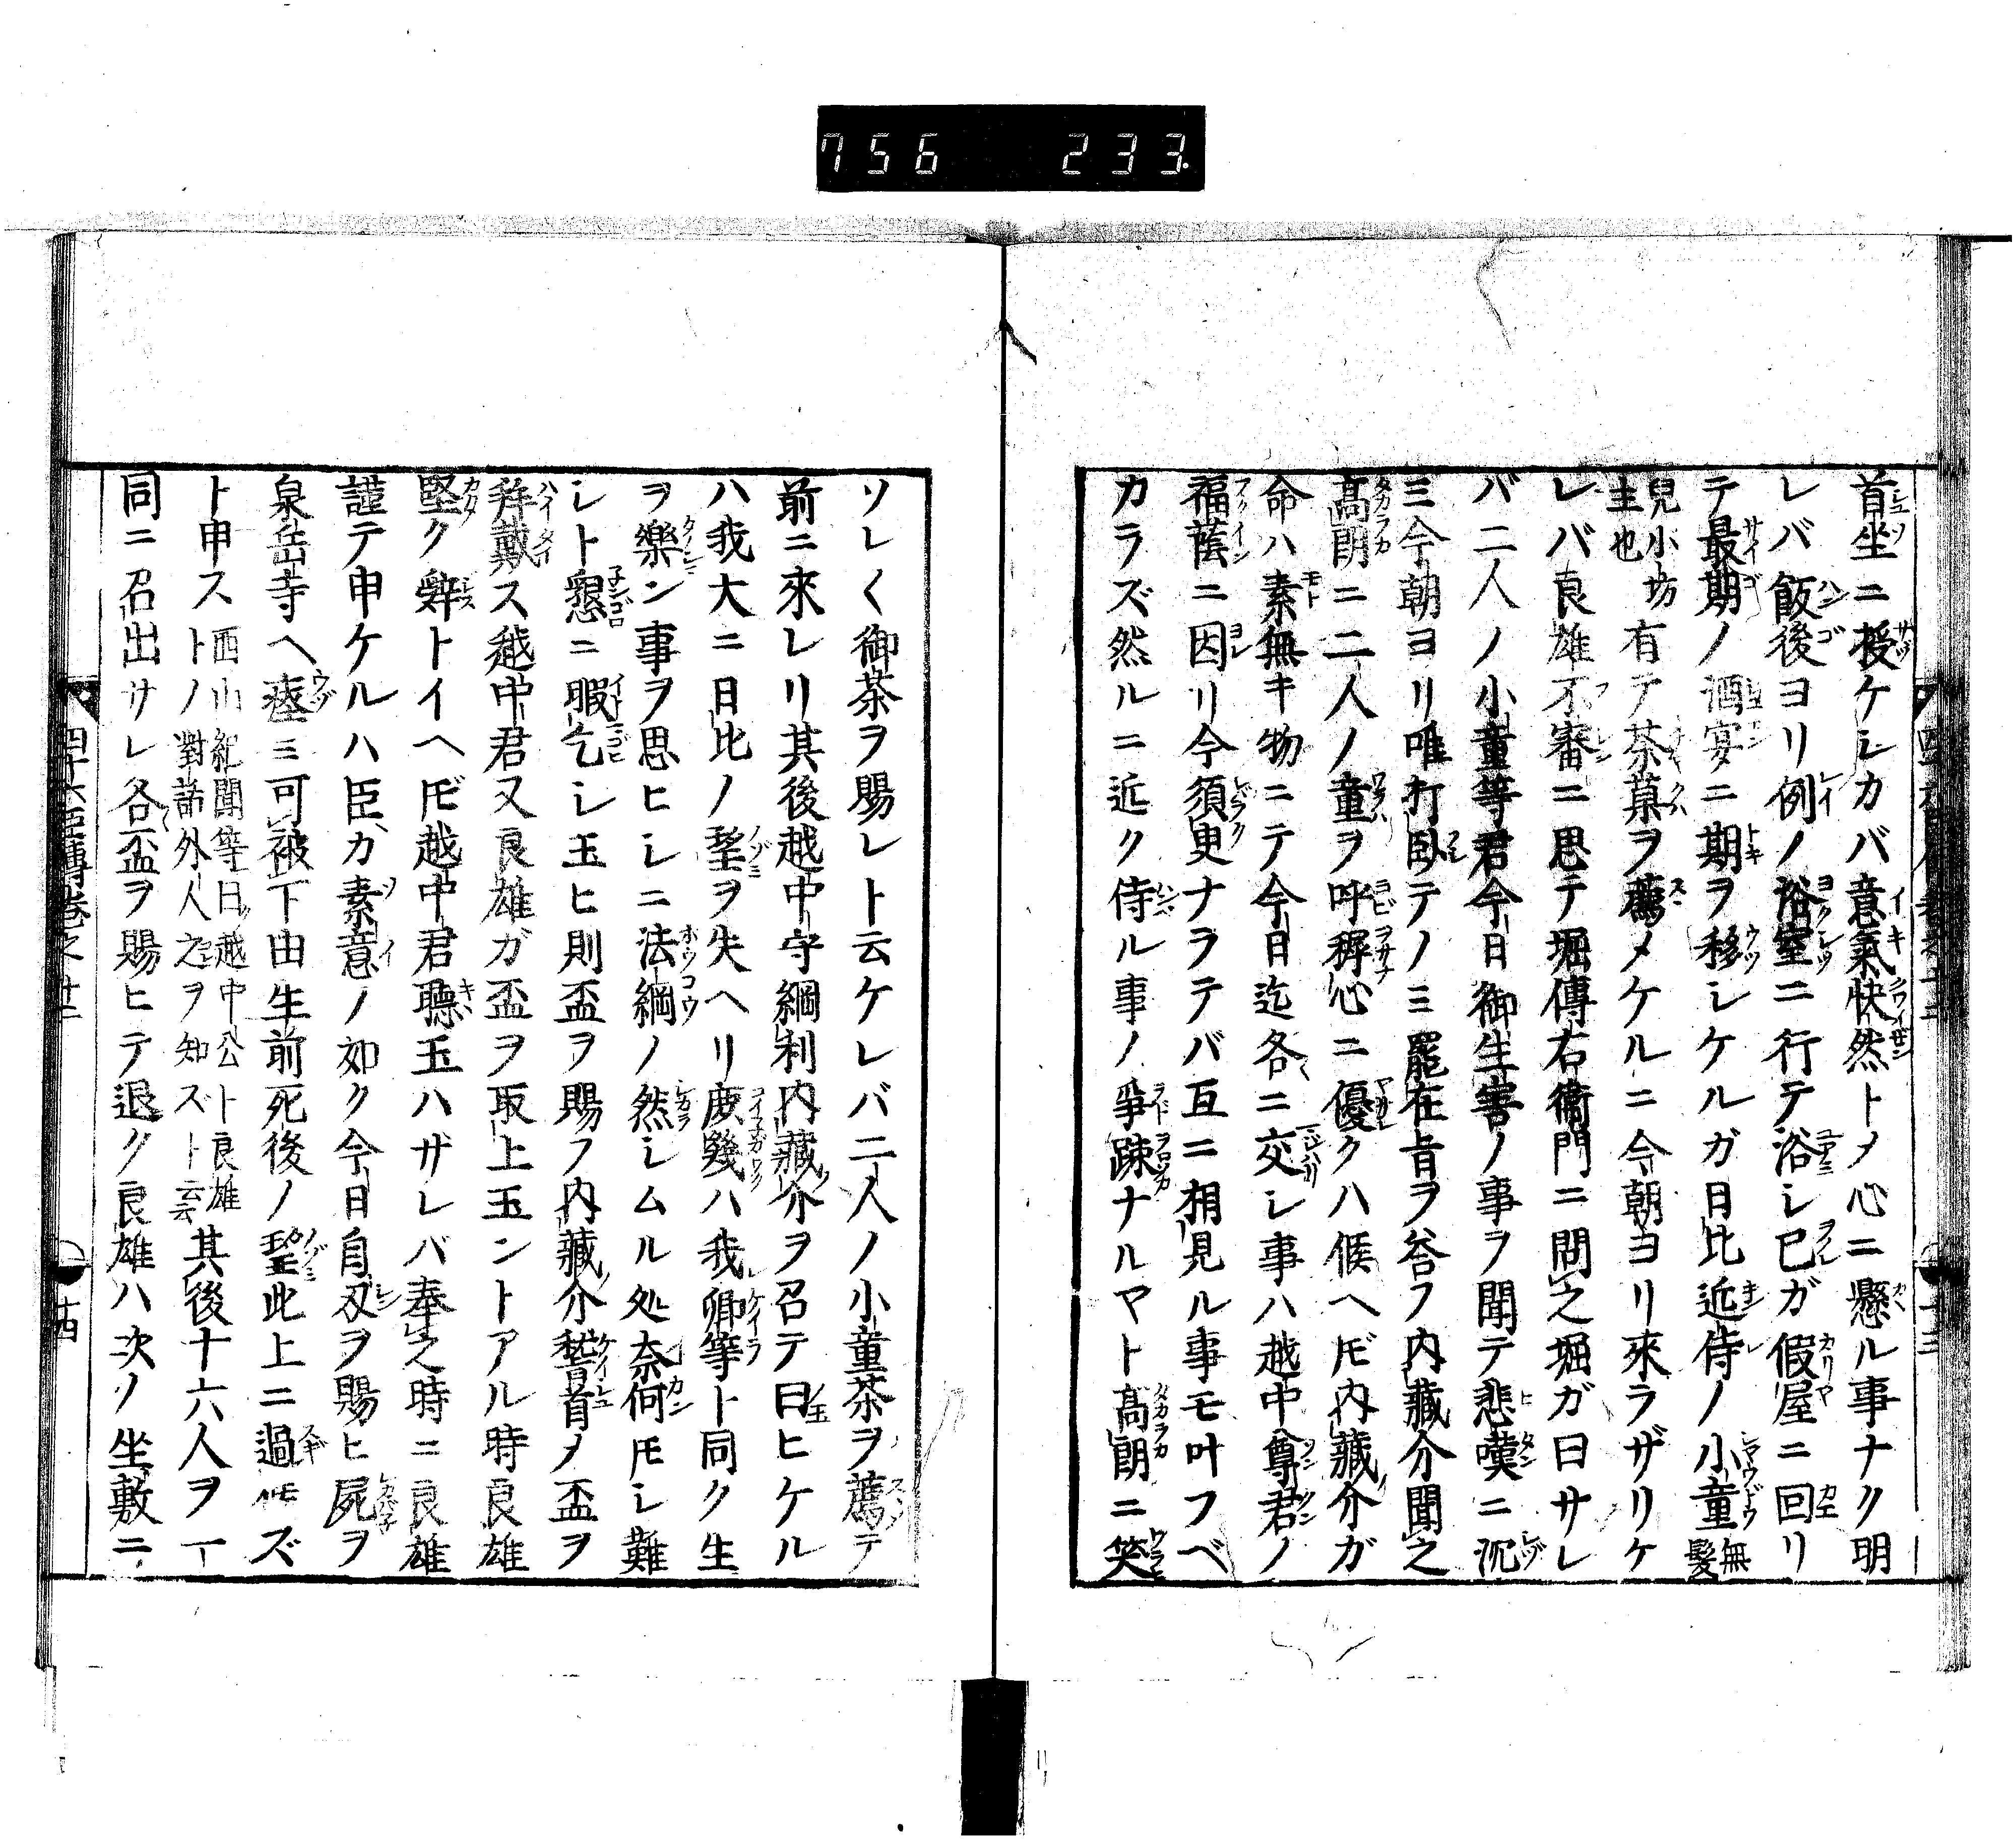 756 233
首坐ニ授ケシカバ意氣快然トメ心ニ懸ル事ナク明
レバ飯後ヨリ例ノ浴室ニ行テ浴シ已ガ假屋ニ回リ
テ最期ノ酒宴ニ期ヲ移シケルガ日比近侍ノ小童無髮
兒小坊主也有テ茶菓ヲ薦メケルニ今朝ヨリ來ラザリケ
レバ良雄不審ニ思テ堀傳右衛門ニ問之堀ガ曰サレ
バ二人ノ小童等君今日御生害ノ事ヲ聞テ悲嘆ニ沉
ミ今朝ヨリ唯打臥テノミ罷在旨ヲ答フ内藏介聞之
髙朗ニ二人ノ童ヲ呼穉心ニ優クハ候ヘ𪜈内藏介ガ
命ハ素無キ物ニテ今日迄各々ニ交シ事ハ越中尊君ノ
福蔭ニ因リ今須更ナラテバ互ニ相見ル事モ叶フベ
カラズ然ルニ近ク侍ル事ノ爭疎ナルマト髙朗ニ笑
ソレ〱御茶ヲ賜レト云ケレバ二人ノ小童茶ヲ薦テ
前ニ來レリ其後越中守綱利内藏介ヲ召テ曰ヒケル
ハ我大ニ日比ノ望ヲ失ヘリ庶幾ハ我卿等ト同ク生
ヲ樂ン事ヲ思ヒシニ法綱ノ然シムル処奈何𪜈シ難
シト懇ニ暇乞シ玉ヒ則盃ヲ賜フ内藏介稽首メ盃ヲ
拜戴ス越中君又良雄ガ盃ヲ取上玉ントアル時良雄
堅ク辭トイヘ𪜈越中君聽玉ハザレバ奉之時ニ良雄
謹テ申ケルハ臣カ素意ノ如ク今日自刃ヲ賜ヒ屍ヲ
泉岳寺ヘ瘞ミ可被下由生前死後ノ望此上ニ過候ズ
ト申ストノ西山紀聞等曰越中公ト良雄對話外人之ヲ知ズト云云其後十六人ヲ一
同ニ召出サレ各々盃ヲ賜ヒテ退ク良雄ハ次ノ坐敷ニ
四十六臣傳卷之廿二 十四